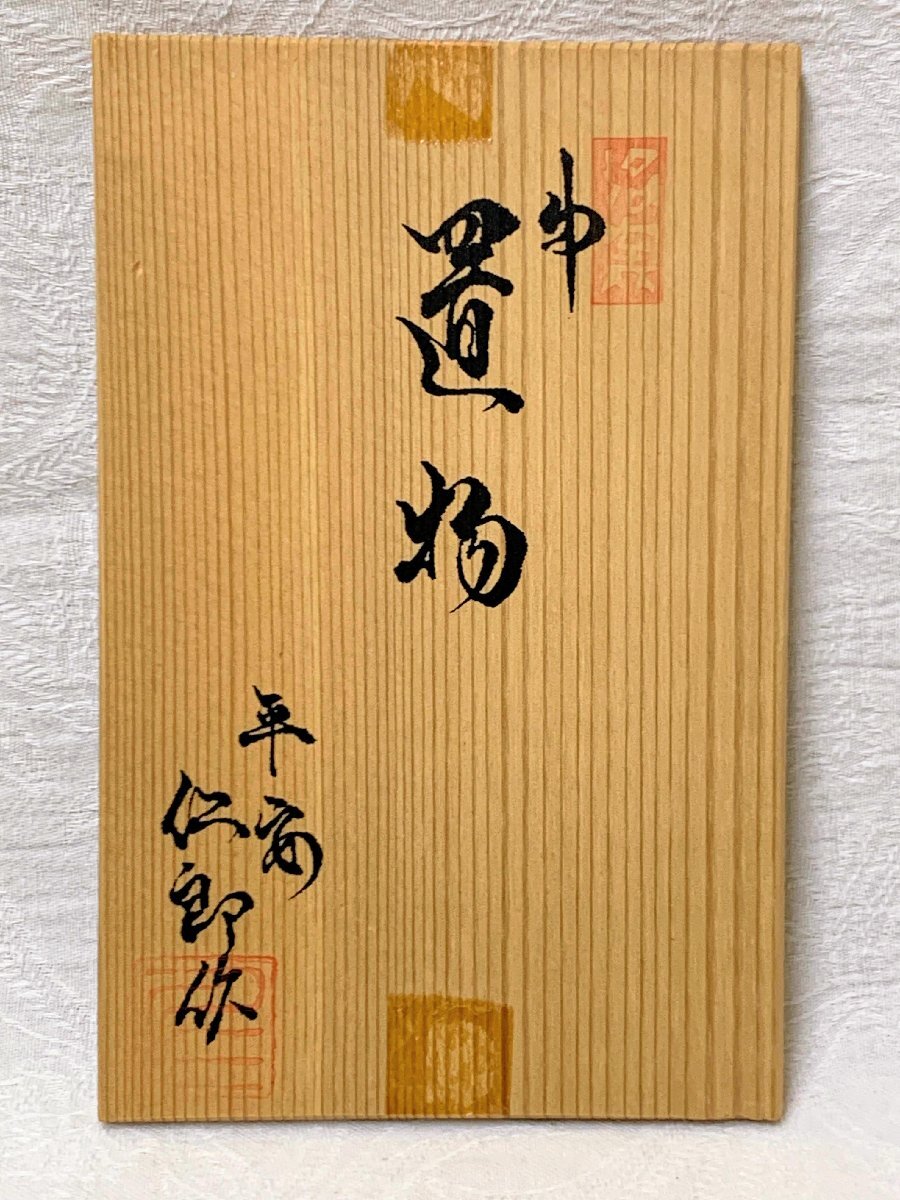 置物
平安
仁郎作